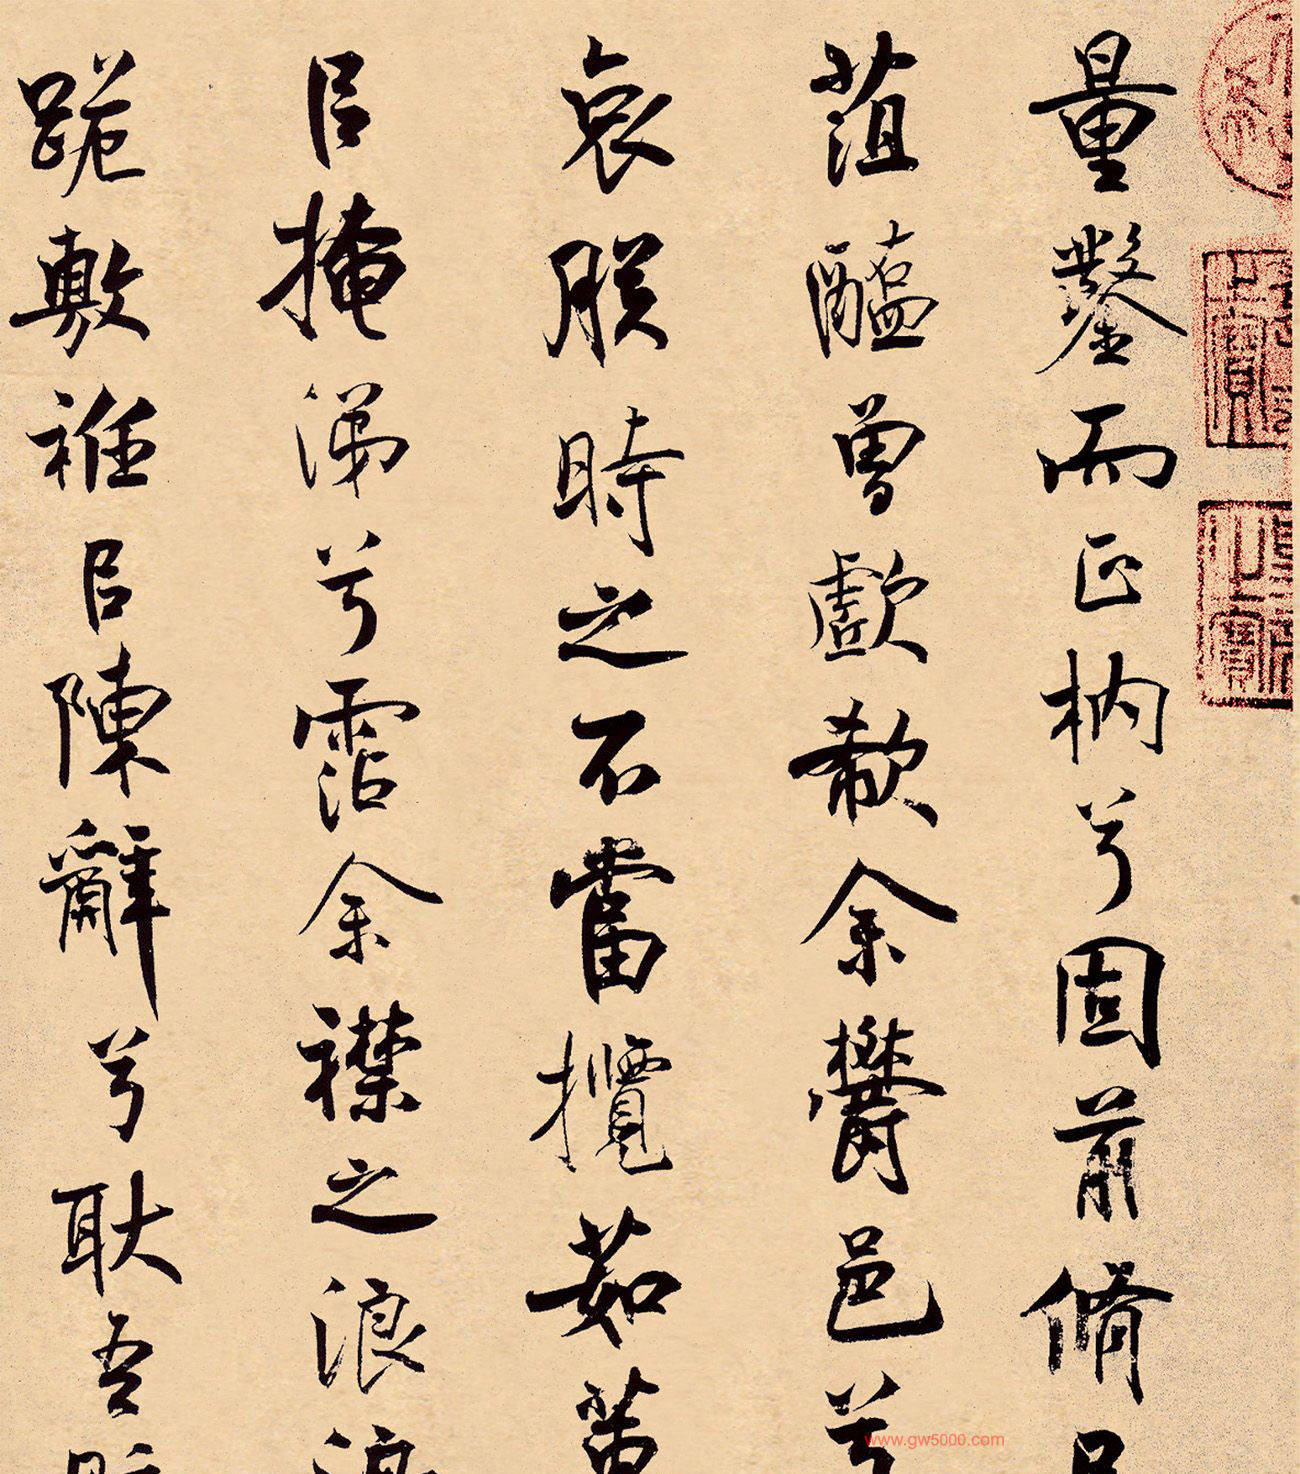 量鑿而正枘兮固前脩㠯
菹醢曾歔欷余鬱邑兮
哀朕時之不當攬茹蕙
㠯掩涕兮霑余襟之浪浪
跪敷衽㠯陳辭兮耿吾既
之寶
之寶
www.gw5000.com